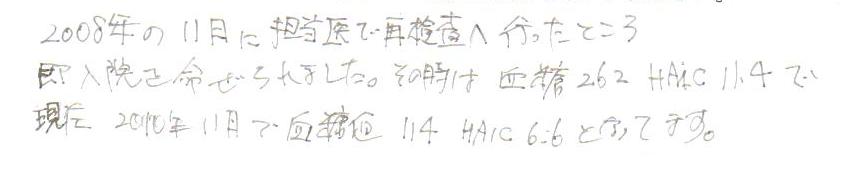 2008年の11月に担当医で再検査へ行ったところ
即入院を命ぜられました。その時は血糖262 HAiC 11.4で
現在 2010年11月で血糖値 114 HA1C 6.6となってます。